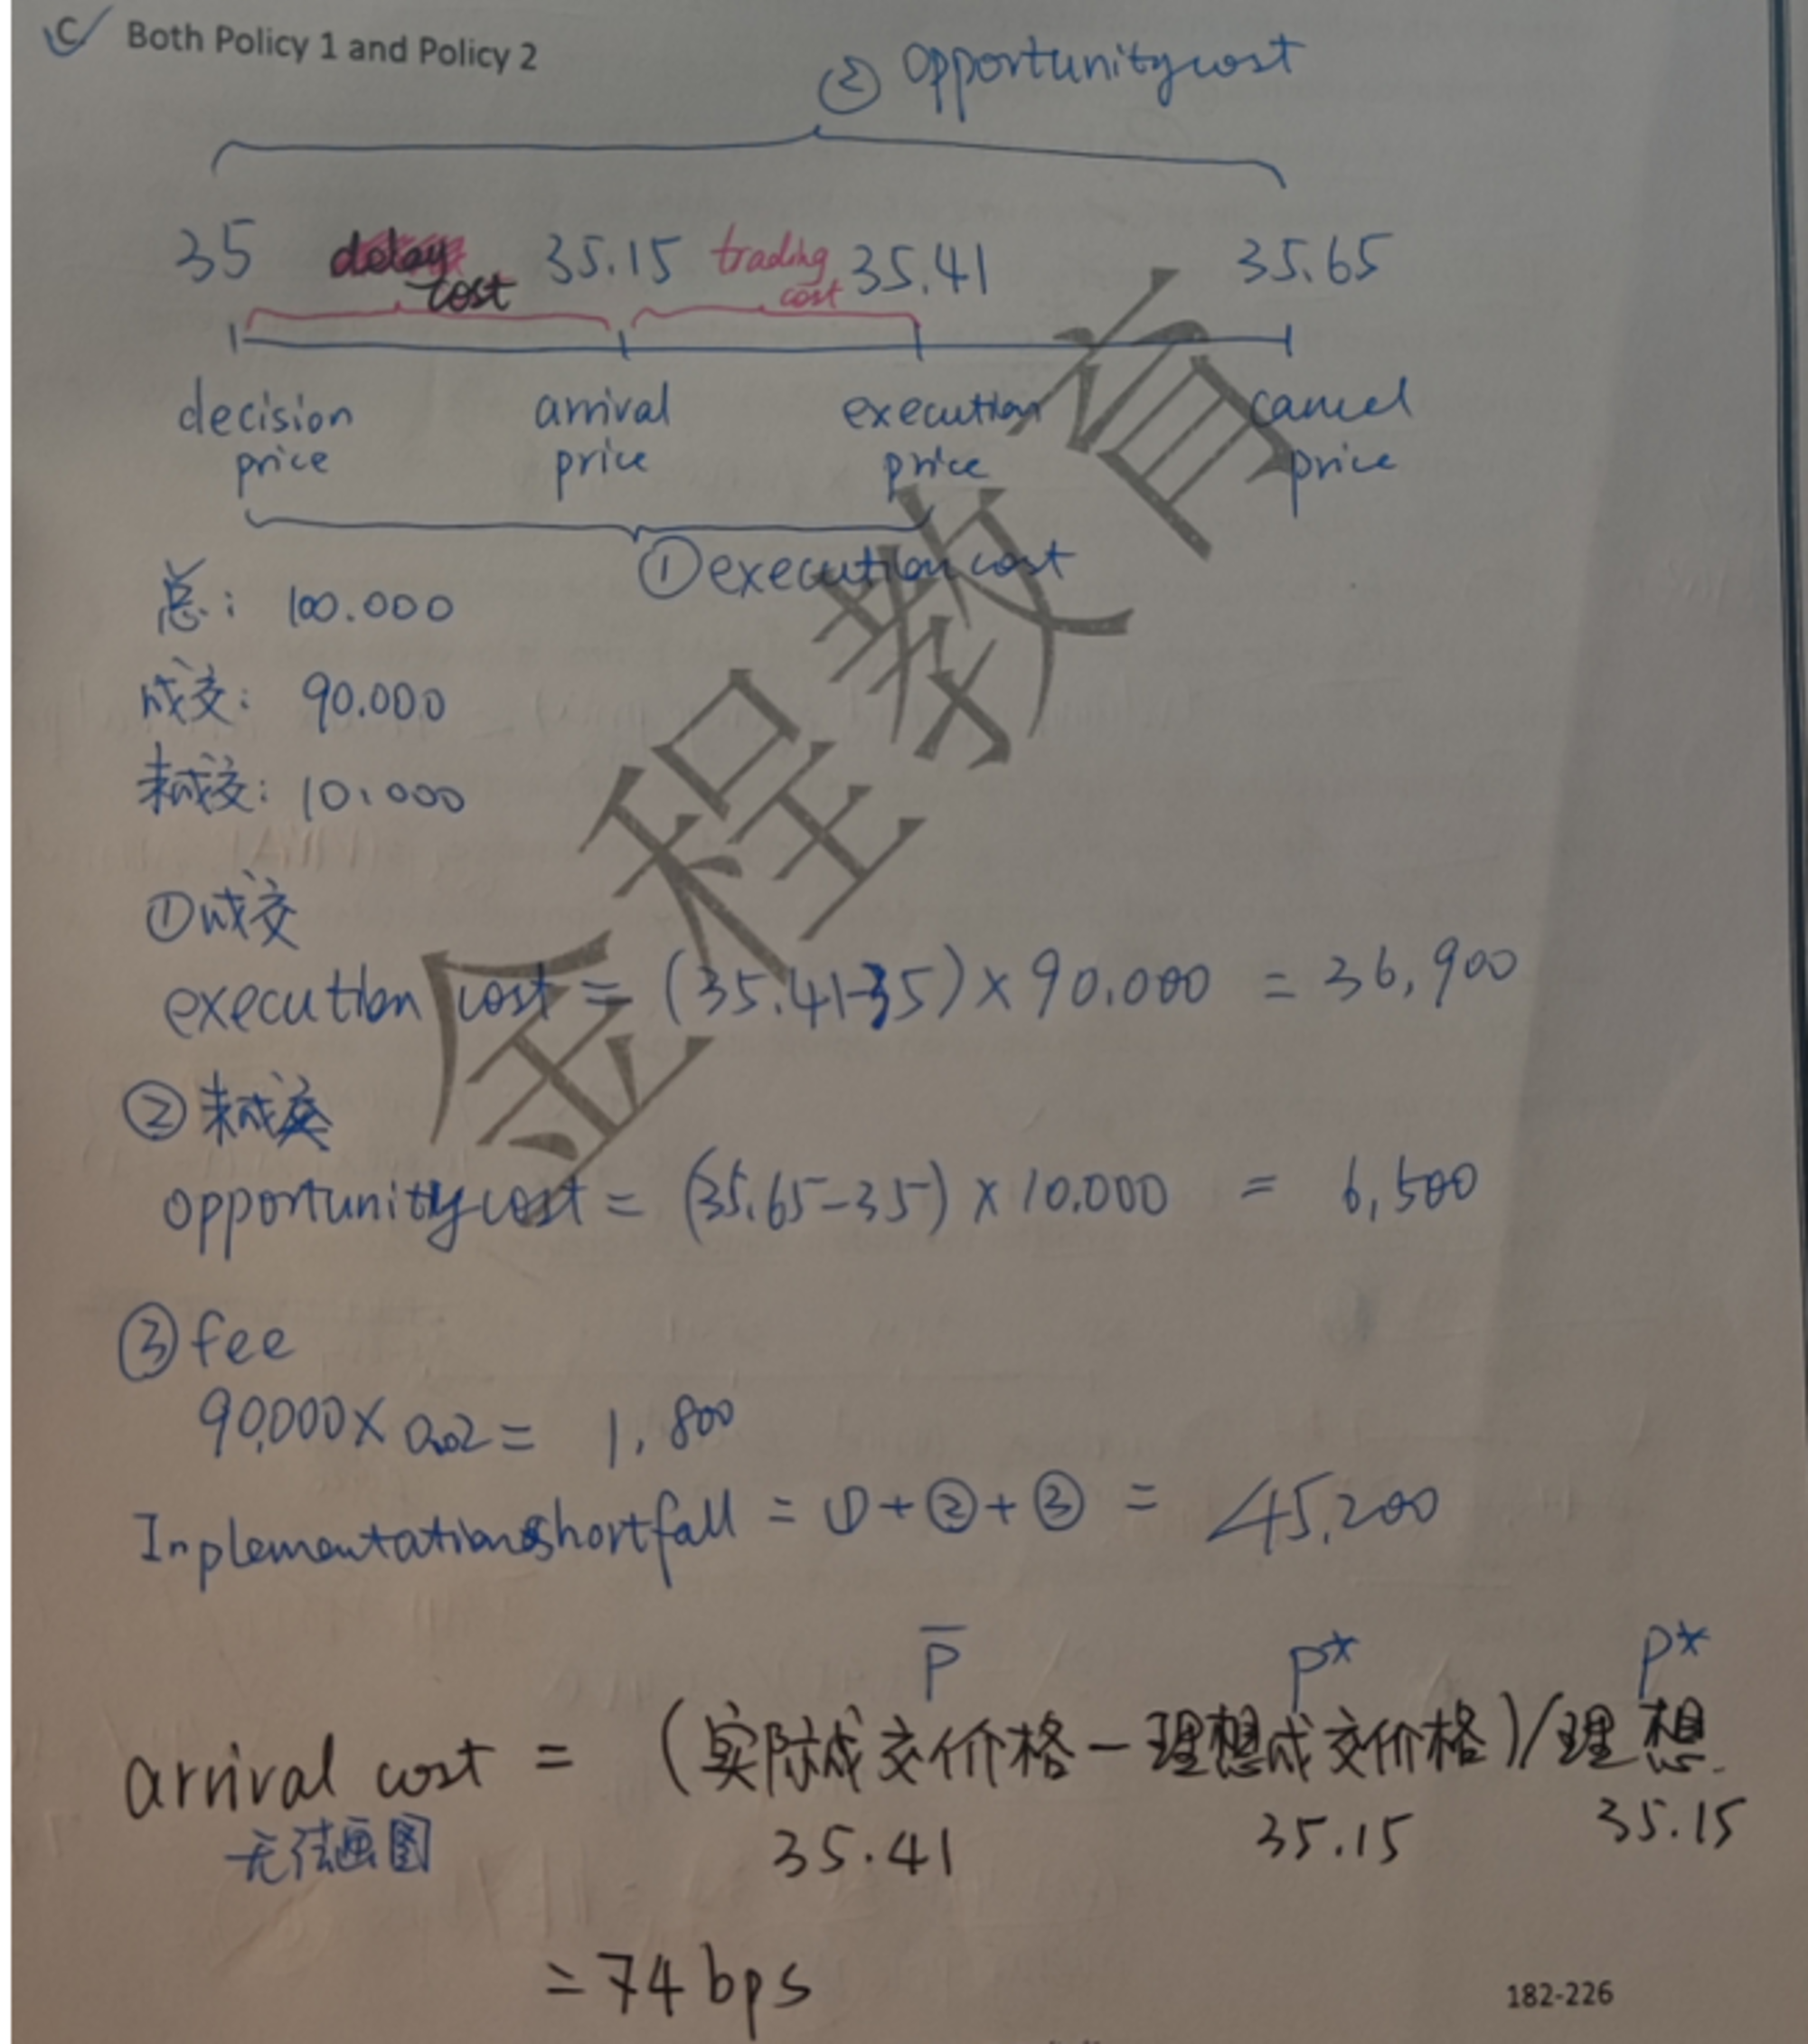 C Both Policy 1 and Policy 2
② opportunity cost
35 delay cost 35.15 trading cost 35.41 35.65
decision price arrival price execution price cancel price
① execution cost
总: 100.000
成交: 90.000
未成交: 10.000
① 成交
execution cost = (35.41-35) × 90.000 = 36,900
② 未成交
opportunity cost = (35.65-35) × 10.000 = 6,500
③ fee
90,000 × 0.02 = 1,800
Inplementation shortfall = ① + ② + ③ = 45,200
P̄ P* P*
arrival cost = (实际成交价格 - 理想成交价格)/理想.
无法画图 35.41 35.15 35.15
= 74 bps
182-226
金程教育